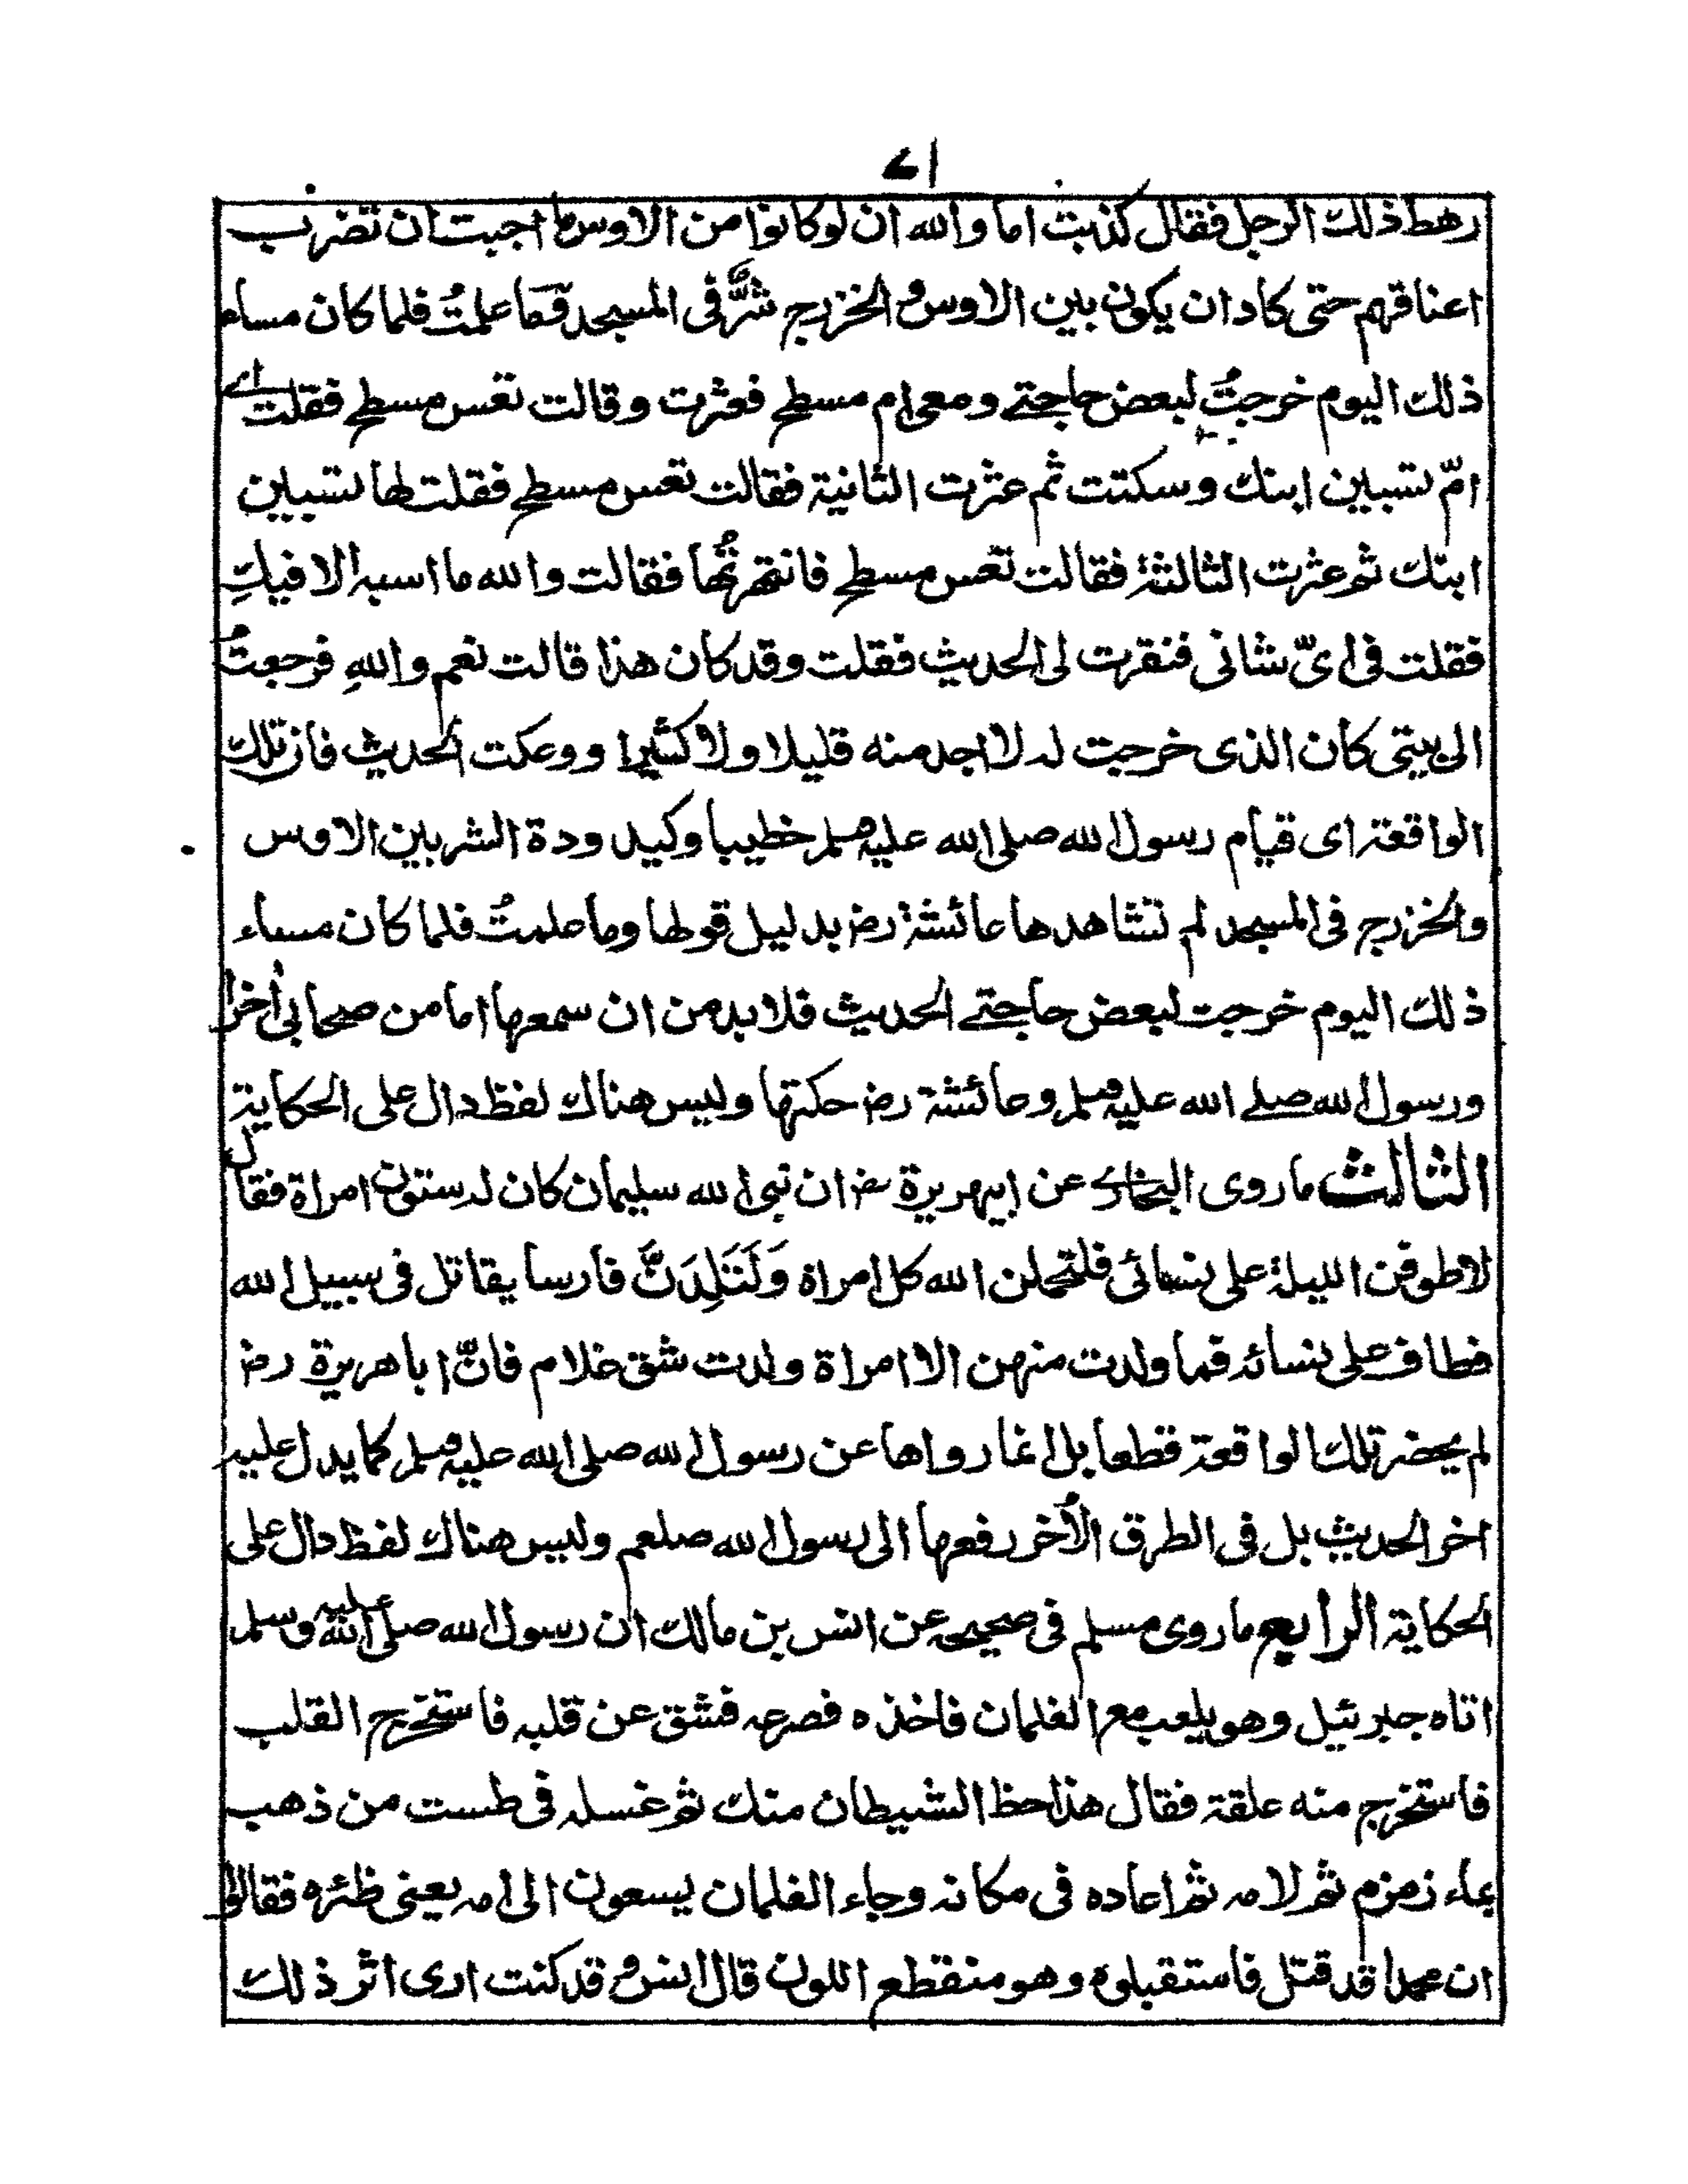 ٧١
رهط ذلك الرجل فقال كذبت اما والله ان لو كانوا من الاوس ما اجبت ان تضرب
اعناقهم حتى كاد ان يكون بين الاوس والخزرج شرٌّ فى المسجد وَمَا علمتُ فلما كان مساء
ذلك اليوم خرجتُ لبعض حاجتے ومعى ام مسطح فعثرت وقالت تعس مسطح فقلت اے
امّ تسبين ابنك وسكتت ثم عثرت الثانية فقالت تعس مسطح فقلت لها تسبين
ابنك ثم عثرت الثالثة فقالت تعس مسطح فانتهرتُها فقالت والله ما اسبه الا فيكِ
فقلت فى اىّ شانى فنقرت لى الحديث فقلت وقد كان هذا قالت نعم واللهِ فرجعتُ
الى بيتى كان الذى خرجت له لا اجد منه قليلا ولا كثيرا ووعكت الحديث فان تلك
الواقعة اى قيام رسول الله صلى الله عليه وسلم خطيبا وكيد ودة الشر بين الاوس
والخزرج فى المسجد لم تشاهدها عائشة رض بدليل قولها وما علمتُ فلما كان مساء
ذلك اليوم خرجت لبعض حاجتے الحديث فلا بد من ان سمعها اما من صحابى أخر او
ورسول الله صلے الله عليه وسلم وعائشة رض حكتها وليس هناك لفظ دال على الحكاية
الثالث ما روى البخارے عن ابيهريرة رض ان نبى الله سليمان كان له ستون امراة فقال
لاطوفن الليلة على نسائى فلتحملن الله كل امراة وَلَتَلِدَنَّ فارسا يقاتل فى سبيل الله
فطاف على نسائه فما ولدت منهن الا امراة ولدت شق غلام فانّ ابا هريرة رض
لم يحضر تلك الواقعة قطعا بل انما رواها عن رسول الله صلى الله عليه وسلم كما يدل عليه
اخر الحديث بل فى الطرق الأخر رفعها الى رسول الله صلعم وليس هناك لفظ دال على
الحكاية الرابع ما روى مسلم فى صحيحه عن انس بن مالك ان رسول الله صلى الله عليه وسلم
اتاه جبرئيل وهو يلعب مع الغلمان فاخذه فصرعه فشق عن قلبه فاستخرج القلب
فاستخرج منه علقة فقال هذا حظ الشيطان منك ثم غسله فى طست من ذهب
بماء زمزم ثم لامه ثم اعاده فى مكانه وجاء الغلمان يسعون الى امه يعنى ظئره فقالوا
ان محمدا قد قتل فاستقبلوه وهو منقطع اللون قال انس وقد كنت ارى اثر ذلك